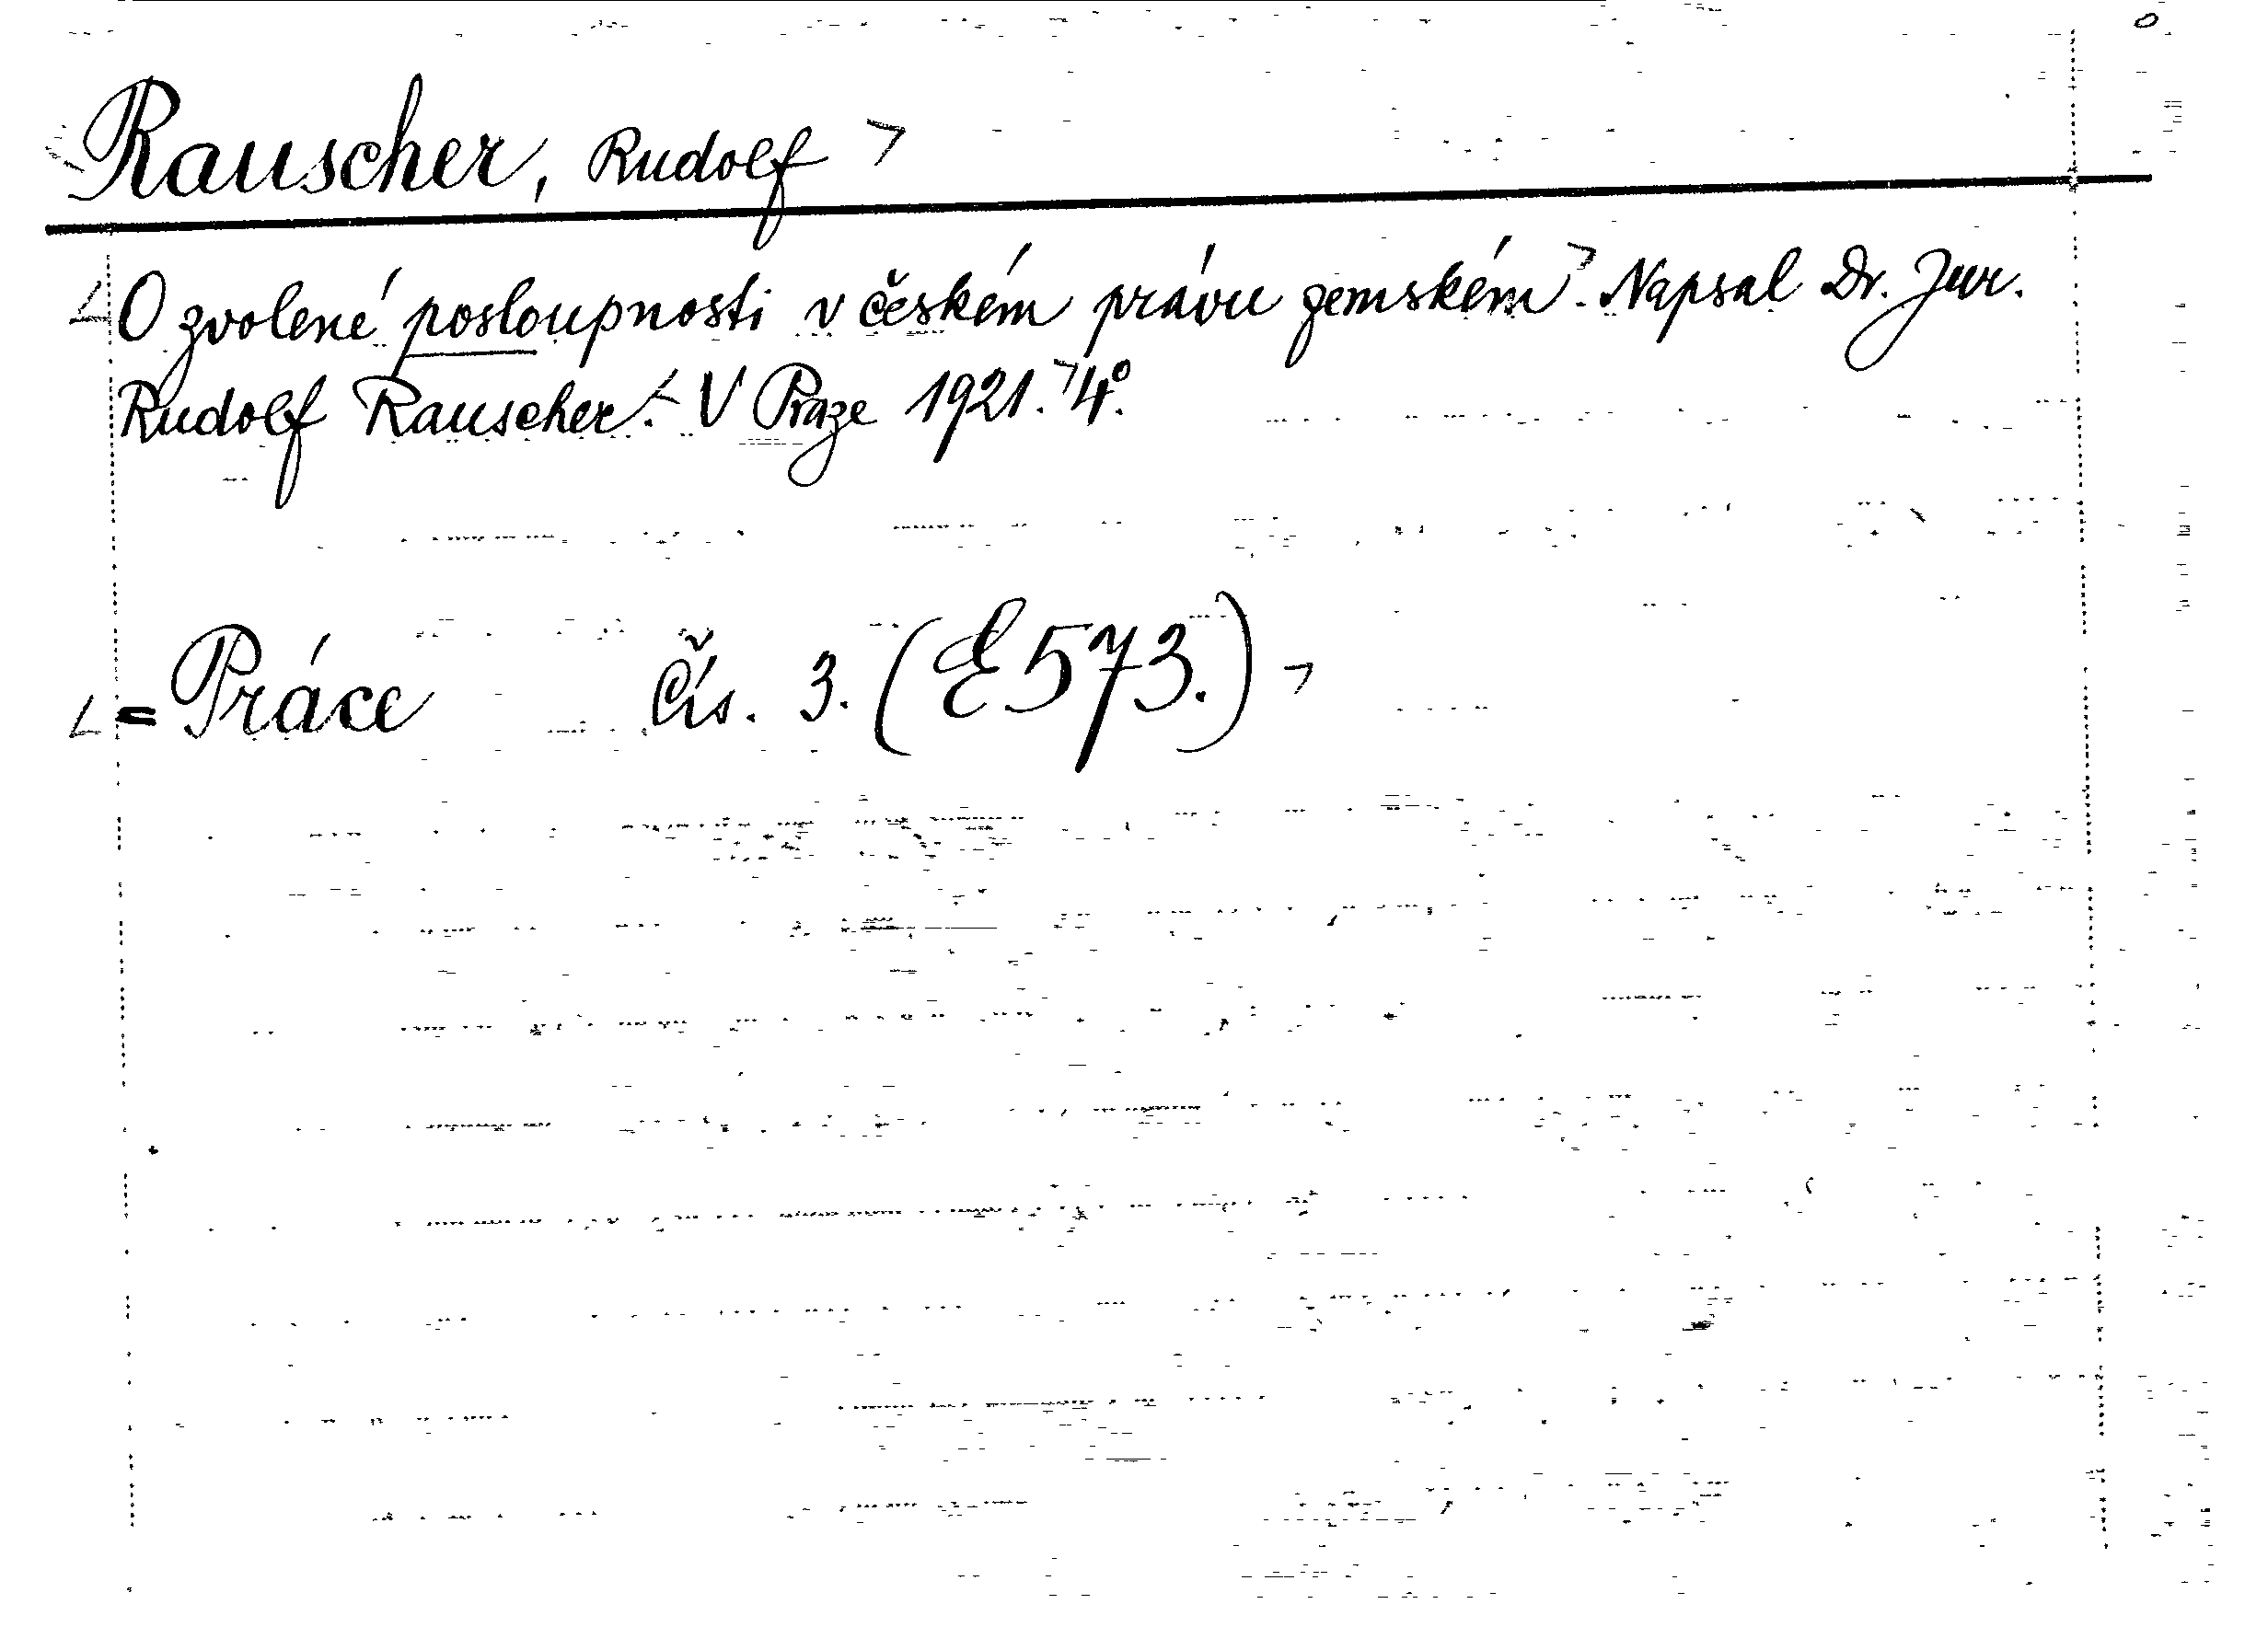 Rauscher, Rudolf
O zvolené posloupnosti v českém právu zemském. Napsal Dr. Jur.
Rudolf Rauscher. V Praze 1921. 4°.
= Práce Čís. 3. (E 573.)